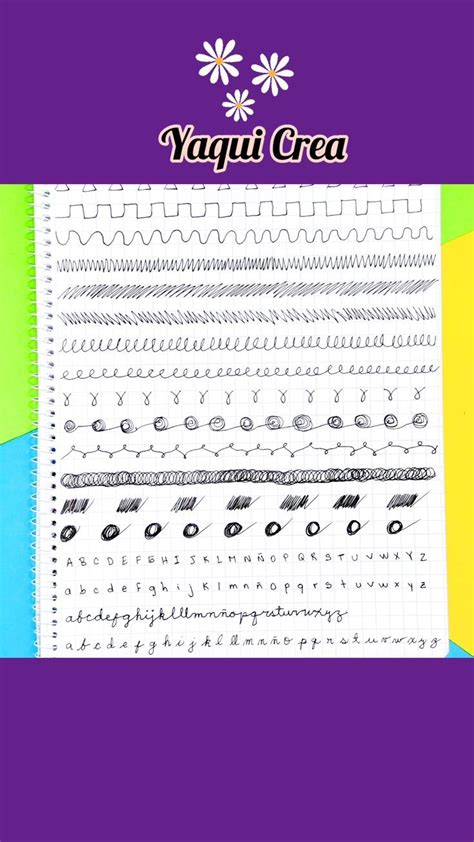 Yaqui Crea
A B C D E F G H I J K L M N Ñ O P Q R S T U V W X Y Z
a b c d e f g h i j k l m n ñ o p q r s t u v w x y z
abcdefghijklllmnñopqrstuvwxyz
a b c d e f g h i j k l ll m n ñ o p q r s t u v w x y z